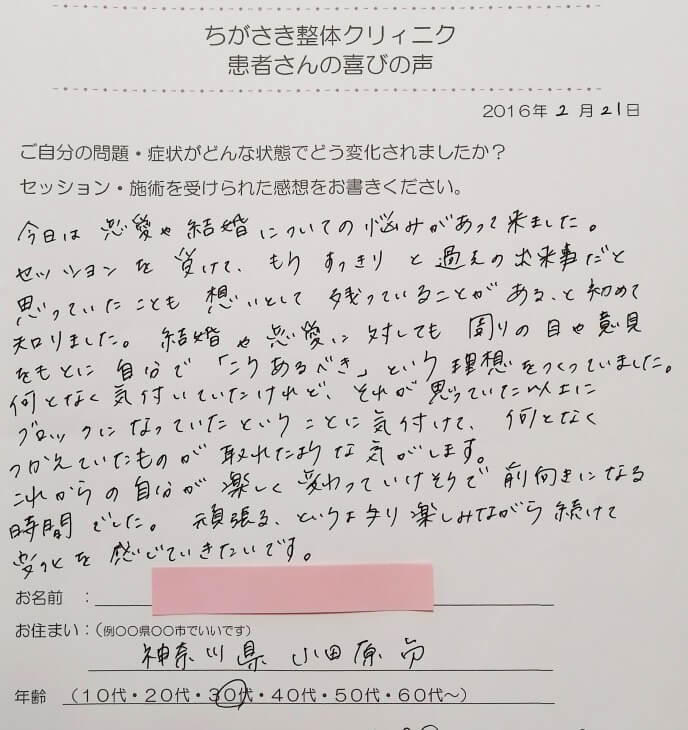 ちがさき整体クリィニク
患者さんの喜びの声
2016年 2 月 21日
ご自分の問題・症状がどんな状態でどう変化されましたか？
セッション・施術を受けられた感想をお書きください。
今日は 恋愛や結婚についての悩みがあって来ました。
セッションを受けて、もうすっきりと過去の出来事だと
思っていたことも 想いとして 残っていることがある、と初めて
知りました。結婚や恋愛に対しても 周りの目や意見
をもとに 自分で「こうあるべき」という理想をつくっていました。
何となく気付いていたけれど、それが思っていた以上に
ブロックになっていたということに気付けて、何となく
つかえていたものが 取れたような気がします。
これからの自分が楽しく変わっていけそうで前向きになる
時間でした。頑張る、というより楽しみながら続けて
変化を感じていきたいです。
お名前 ：
お住まい：（例〇〇県〇〇市でいいです）
神奈川県 小田原市
年齢 （１０代・２０代・３０代・４０代・５０代・６０代～）